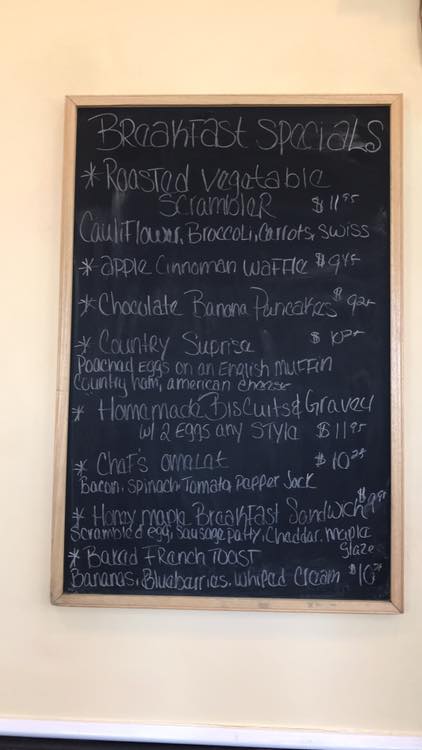 BreakFast Specials
* Roasted Vegetable
Scrambler $11.95
Cauliflower, Broccoli, Carrots, Swiss
* apple Cinnoman waffle $9.45
* Chocolate Banana Pancakes $9.25
* Country Suprise $10.25
Poached Eggs on an English muffin
Country ham, american cheese
* Homemade Biscuits & Gravey
w/ 2 Eggs any Style $11.95
* Chef's omelet $10.25
Bacon, Spinach, Tomato, Pepper Jack
* Honey maple BreakFast Sandwich $9.95
Scrambled egg, Sausage patty, Cheddar, maple
glaze
* Baked French Toast
Bananas, Blueberries, whiped Cream $10.25